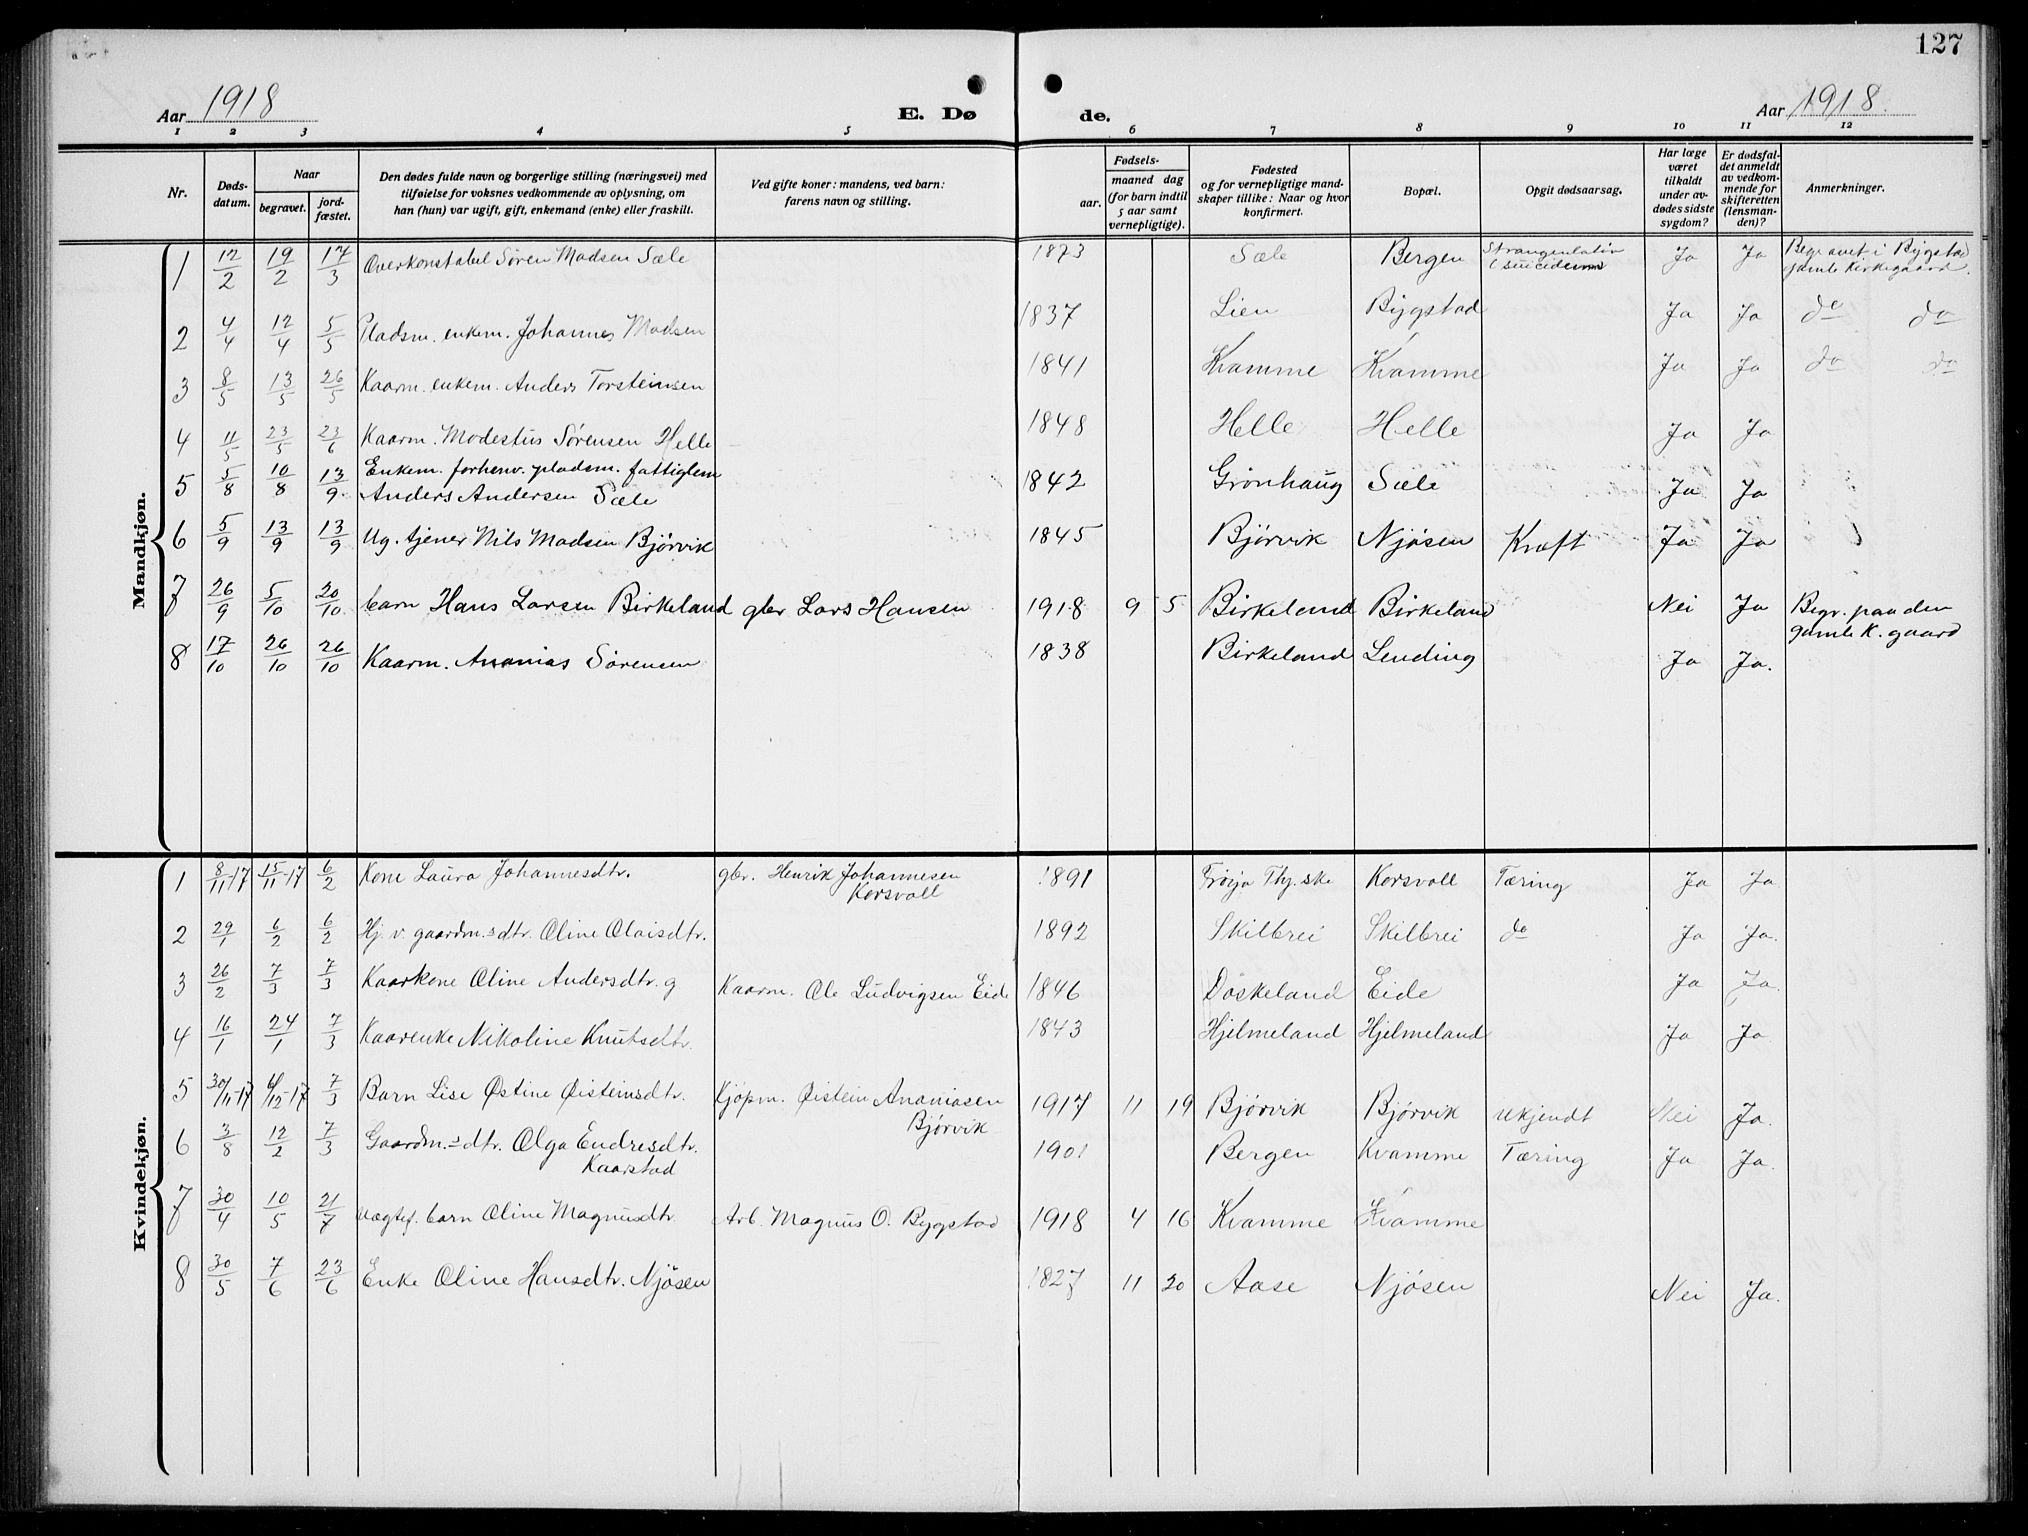 127
Aar 1918 E. Dø de. Aar 1918.
1 2 3 4 5 6 7 8 9 10 11 12
Nr. Døds-datum. Naar begravet. jord-fæstet. Den dødes fulde navn og borgerlige stilling (næringsvei) med tilføielse for voksnes vedkommende av oplysning, om han (hun) var ugift, gift, enkemand (enke) eller fraskilt. Ved gifte koner: mandens, ved barn: farens navn og stilling. aar. Fødsels- maaned dag (for barn indtil 5 aar samt vernepligtige). Fødested og for vernepligtige mand-skaper tillike: Naar og hvor konfirmert. Bopæl. Opgit dødsaarsag. Har læge været tilkaldt under av-dødes sidste sygdom? Er dødsfal-det anmeldt av vedkom-mende for skifteretten (lensman-den)? Anmerkninger.
Mandkjøn.
1 12/2 19/2 17/3 Overkonstabel Søren Madsen Sæle 1873 Sæle Bergen Strangulatio (suicidium) Ja Ja Begravet i Bygstad gamle Kirkegaard.
2 4/4 12/4 5/5 Pladsm. enkem. Johannes Madsen 1837 Lien Bygstad Ja Ja do do
3 8/5 13/5 26/5 Kaarm. enkem. Anders Torsteinsen 1841 Kvamme Kvamme Ja Ja do do
4 11/5 23/5 23/6 Kaarm. Modestus Sørensen Helle 1848 Helle Helle Ja Ja
5 5/8 10/8 13/9 Enkem. forhenv. pladsm. fattiglem
Anders Andersen Sæle 1842 Grönhaug Sæle Ja Ja
6 5/9 13/9 13/9 Ug. tjener Nils Madsen Bjørvik 1845 Bjørvik Njøsen Kræft Ja Ja
7 26/9 5/10 20/10 barn Hans Larsen Birkeland gbr Lars Hansen 1918 9 5 Birkeland Birkeland Nei Ja Begr. paa den gamle K. gaard
8 17/10 26/10 26/10 Kaarm. Ananias Sørensen 1838 Birkeland Lending Ja Ja.
Kvindekjøn.
1 8/11-17 15/11-17 6/2 Kone Laura Johannesdtr. gbr. Henrik Johannesen Korsvoll 1891 Frøyja Korsvoll Tæring Ja Ja
2 29/1 6/2 6/2 Hj. v. gaardm.s dtr. Oline Olaisdtr. 1892 Skilbrei Skilbrei do Ja Ja.
3 26/2 7/3 7/3 Kaarkone Oline Andersdtr. g Kaarm. Ole Ludvigsen Eide 1846 Døskeland Eide Ja Ja.
4 16/1 24/1 7/3 Kaarenke Nikoline Knutsdtr. 1843 Hjelmeland Hjelmeland Ja Ja
5 30/11-17 6/12-17 7/3 Barn Lise Østine Øisteinsdtr. Kjøpm. Øistein Ananiasen Bjørvik 1917 11 19 Bjørvik Bjørvik Ukjendt Nei Ja.
6 3/8 12/2 7/3 Gaardm.s dtr. Olga Endresdtr. Kaarstad 1901 Bergen Kvamme Tæring Ja Ja.
7 30/4 10/5 21/7 Uægtef. barn Oline Magnusdtr. Arb. Magnus O. Bygstad 1918 4 16 Kvamme Kvamme
8 30/5 7/6 23/6 Enke Oline Hansdtr. Njøsen 1827 11 20 Aase Njøsen Nei Ja.